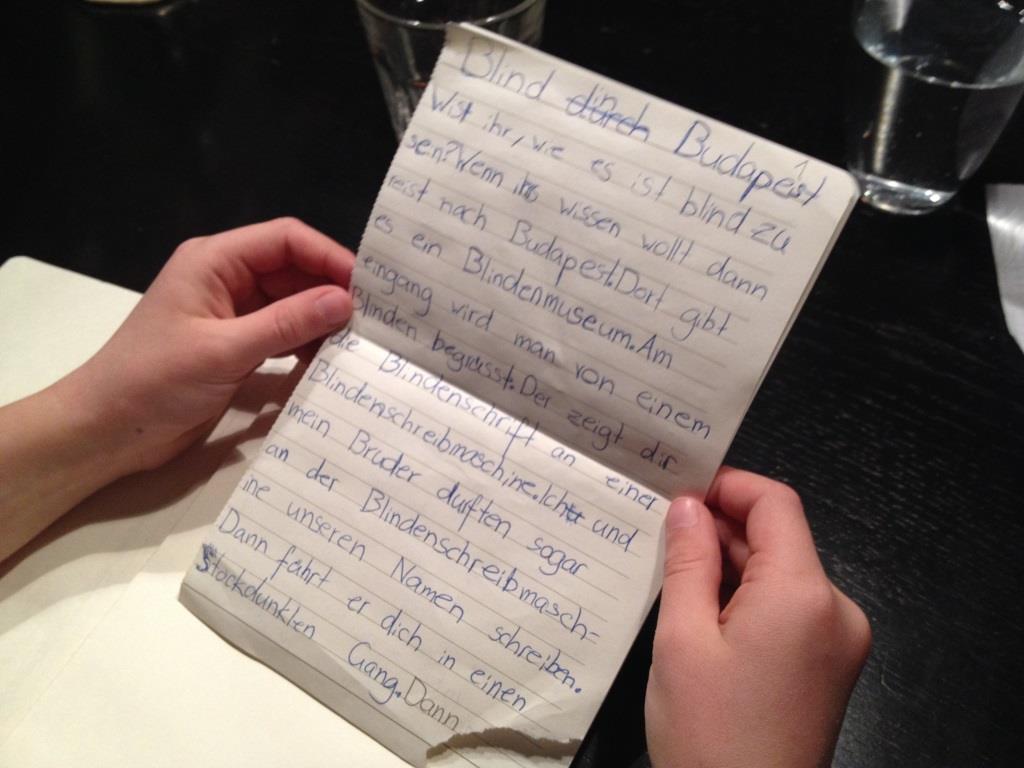 Blind in Budapest
Wist ihr, wie es ist blind zu
sen? Wenn ihrs wissen wollt dann
reist nach Budapest. Dort gibt
es ein Blindenmuseum. Am
eingang wird man von einem
Blinden begrüsst. Der zeigt dir
die Blindenschrift an einer
Blindenschreibmaschine. Ich und
mein Bruder durften sogar
an der Blindenschreibmasch=
ine unseren Namen schreiben.
Dann fährt er dich in einen
Stockdunklen Gang. Dann